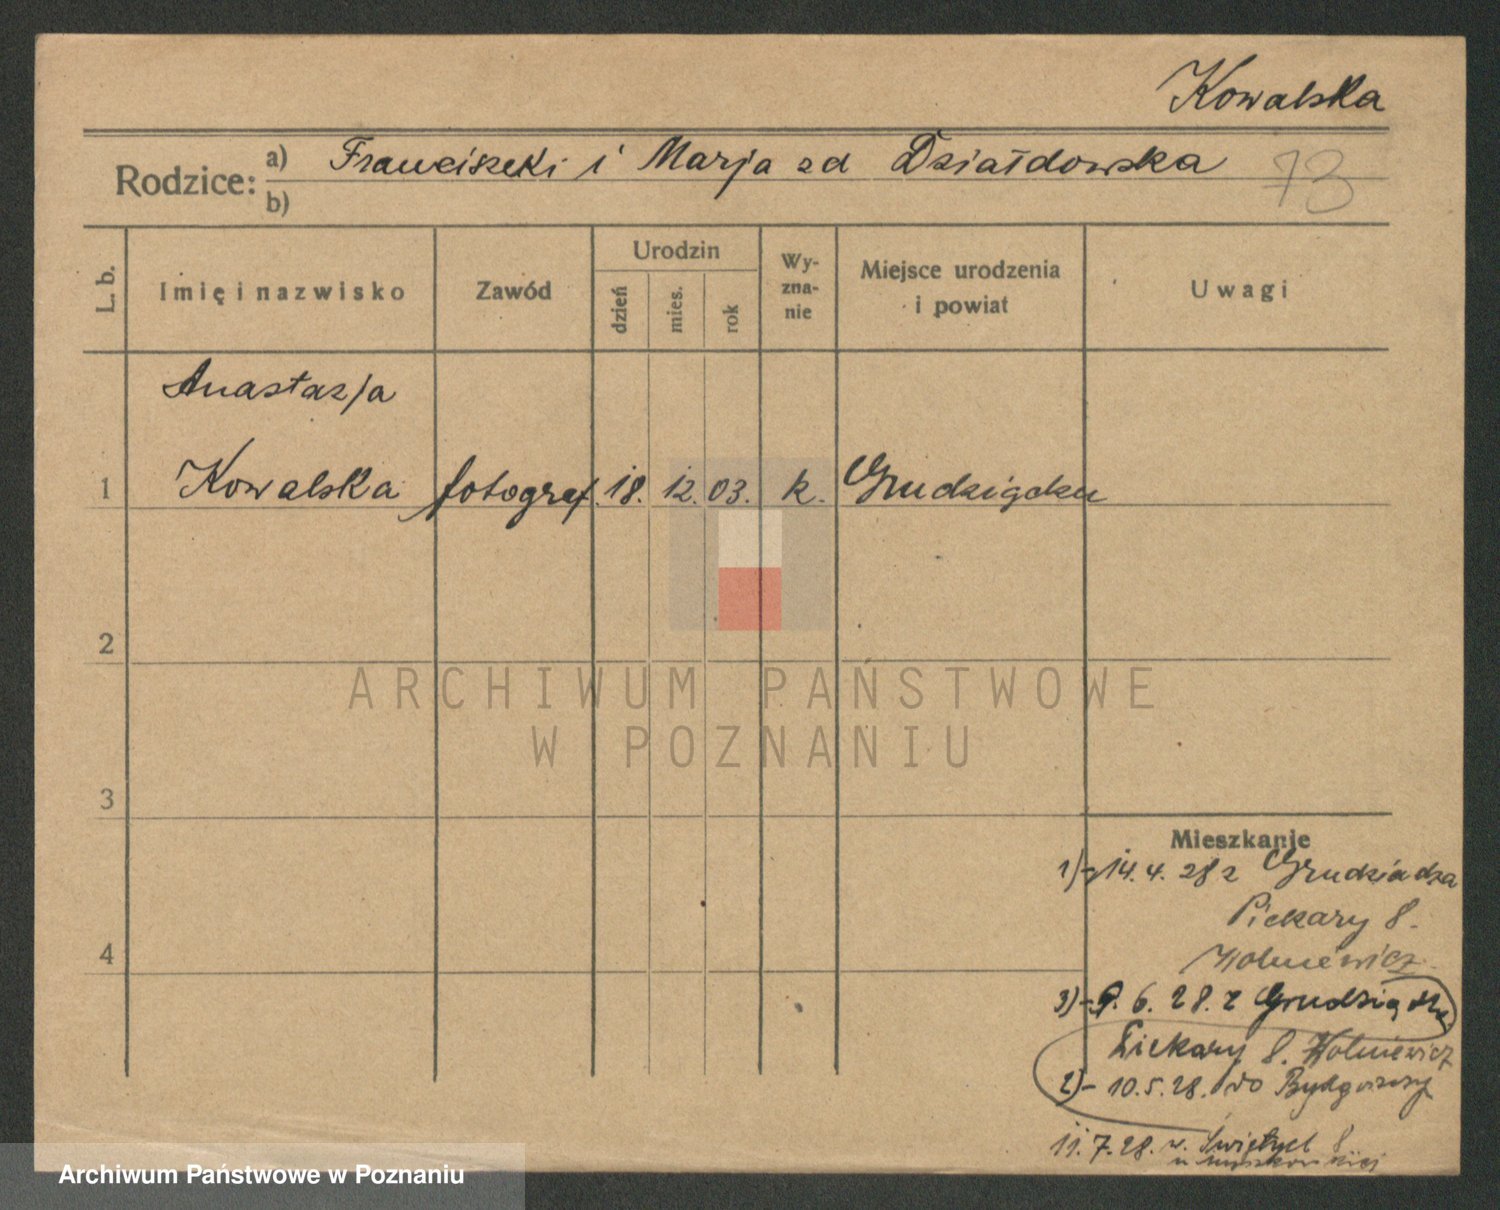 Kowalska
Rodzice: a) Franciszek i Marja zd Działdowska
b)
73
L. b.
Imię i nazwisko
Zawód
Urodzin
dzień
mies.
rok
Wy-
zna-
nie
Miejsce urodzenia
i powiat
Uwagi
Anastazja
1 Kowalska fotograf. 18. 12. 03. k. Grudziądzu
2
ARCHIWUM PAŃSTWOWE
W POZNANIU
3
Mieszkanie
1)- 14. 4. 28 z Grudziadza
Piekary 8.
4
3)- 9. 6. 28. z Grudziądza
Piekary 8.
2)- 10. 5. 28. do Bydgoszczy
11. 7. 28. 8
Archiwum Państwowe w Poznaniu